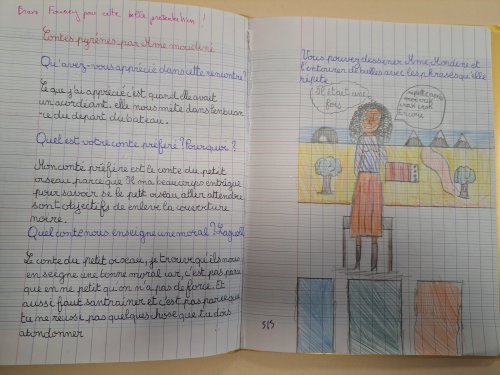 Bravo pour cette belle présentation !
Contes pyrénés par Mme moudiné
Qu'avez-vous apprécié dans cette rencontre ?
Ce que j'ai apprécié c'est quand elle avait
un acordéant. elle nous mète dans l'enbuan
ce du depart du bateau.
Quel est votre conte préféré ? Pourquoi ?
Mon conte préféré est le conte du petit
oiseau parce que Il m'a beaucoups entrigué
pour savoir se le petit oiseau aller attendre
sont objectifs de enlevé la couverture
noire.
Quel conte nous enseigne une moral ? Laquelle
Le conte du petit oiseau, je trouve qu'il nous
enseigne une bonne moral car, c'est pas parce
que en né petit qu'on n'a pas de force. Et
aussi faut s'antrainer et c'est pas parce que
tu ne réussi pas quelques chose que tu dois
abondonner
Vous pouvez dessener Mme Mondine et
l'entourer de bulles avec les phrases qu'elle
répète.
Il était une
fois
encore
5/5